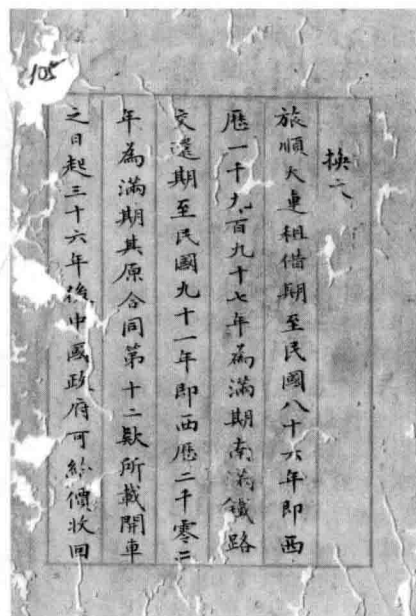 105
換文
旅順大連租借期至民國八十六年即西
歷一千九百九十七年為滿期南滿鐵路
交還期至民國九十一年即西歷二千零二
年為滿期其原合同第十二款所載開車
之日起三十六年後中國政府可給價收回